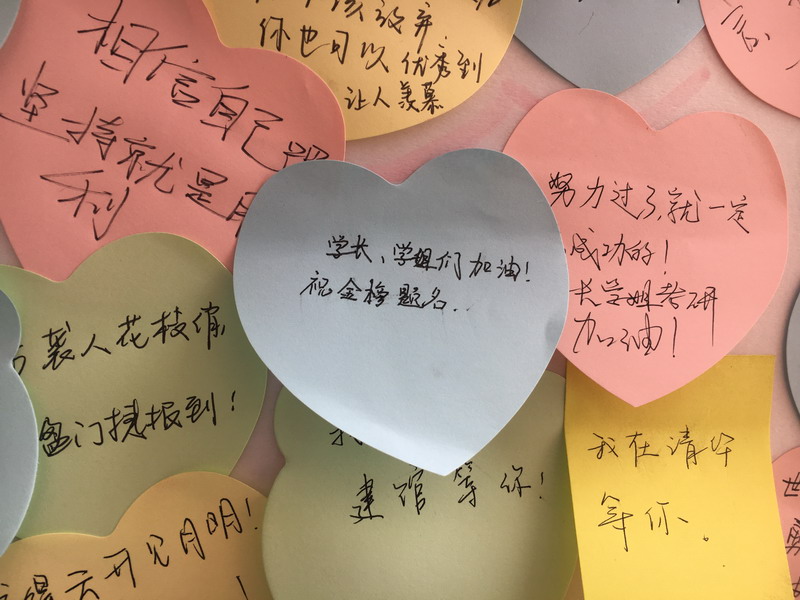 相信自己
坚持就是
利
该放弃
你也可以优秀到
让人羡慕
学长、学姐们加油!
祝金榜题名..
努力过了,就一定
成功的!
长学姐考研
加油!
袭人花枝俏
盈门捷报到!
建馆等你!
我在清华
等你。
云开见月明!